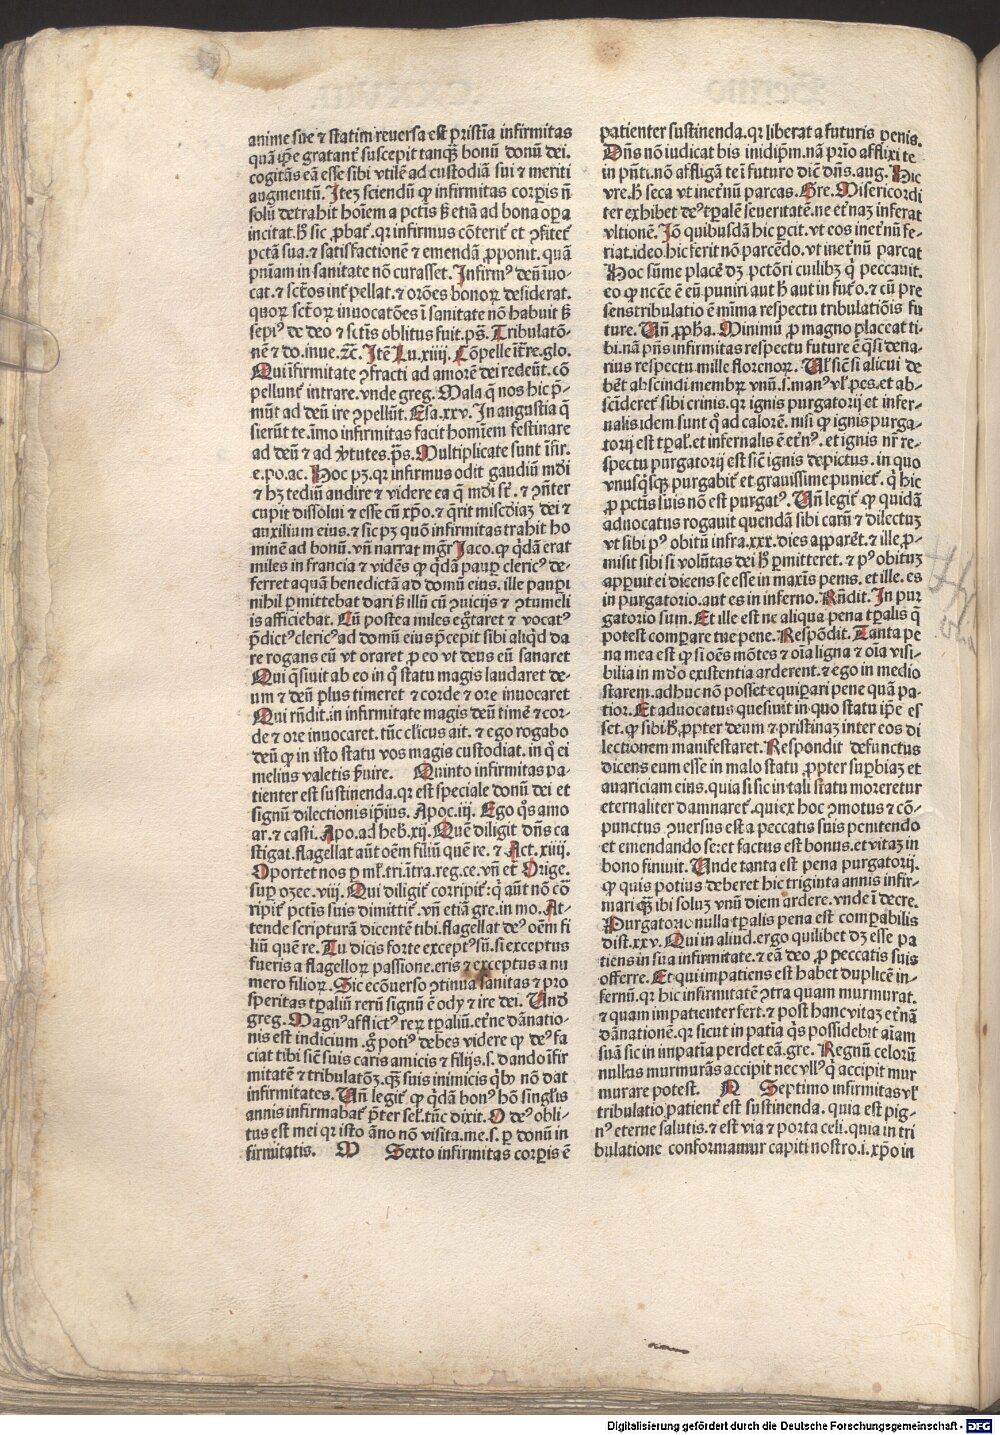 anime sue ⁊ statim reuersa est pristīa infirmitas
quā ip̄e gratant᷑ suscepit tanq̄ꝫ bonū donū dei.
cogitās eā esse sibi vtilē ad custodiā sui ⁊ meriti
augmentū. Itez sciendū ꝙ infirmitas corꝑis n̄
solū detrahit hoīem a pctīs sꝫ etiā ad bona oꝑa
incitat. hꝰ sic ꝓbat᷑. qꝛ infirmus cōterit᷑ et ꝯfitet᷑
pctā sua. ⁊ satisfactionē ⁊ emendā ꝓponit. quā
pn̄iam in sanitate nō curasset. Infirmꝰ deū īuo-
cat. ⁊ sctōs int᷑pellat. ⁊ orōes bonoꝝ desiderat.
quoꝝ sctōꝝ inuocatōes ī sanitate nō habuit sꝫ
sepiꝰ de deo ⁊ sctīs oblitus fuit. ps̄. Tribulatō-
nē ⁊ do. inue. ⁊c̄. Itē Lu. xiiij. Cōpelle ītre. glo.
Qui īfirmitate ꝯfracti ad amorē dei redeūt. cō
pellunt᷑ intrare. vnde greg. Mala q̄ nos hic p̄-
mūt ad deū ire ꝯpellūt. Esa. xxv. In angustia q̄
sierūt te. īmo infirmitas facit homīem festinare
ad deū ⁊ ad v̓tutes. ps̄. Multiplicate sunt īfir.
e. po. ac. Hoc pꝫ. qꝛ infirmus odit gaudiū mūdi
⁊ hꝫ tediū audire ⁊ videre ea q̄ mūdi st̄. ⁊ ꝯn̄ter
cupit dissolui ⁊ esse cū xp̄o. ⁊ q̄rit mīscdiaꝫ dei ⁊
auxilium eius. ⁊ sic pꝫ quō infirmitas trahit ho
minē ad bonū. vn̄ narrat mgr̄ Jaco. ꝙ q̄dā erat
miles in francia ⁊ vidēs ꝙ q̄dā pauꝑ clericꝰ de-
ferret aquā benedictā ad domū eius. ille pauꝑi
nihil ꝑmittebat dari sꝫ illū cū ꝯuicijs ⁊ ꝯtumeli
is afficiebat. Cū postea miles eg̓taret ⁊ vocatꝰ
p̄dictꝰ clericꝰ ad domū eius p̄cepit sibi aliq̄d da
re rogans eū vt oraret ꝓ eo vt deus eū sanaret
Qui q̄siuit ab eo in qͦ statu magis laudaret de-
um ⁊ deū plus timeret ⁊ corde ⁊ ore inuocaret
Qui rn̄dit. in infirmitate magis deū timeē ⁊ cor-
de ⁊ ore inuocaret. tūc cl̄icus ait. ⁊ ego rogabo
deū ꝙ in isto statu vos magis custodiat. in qͦ ei
melius valetis s̓uire. Quinto infirmitas pa-
tienter est sustinenda. qꝛ est speciale donū dei et
signū dilectionis ip̄ius. Apoc. iij. Ego qͦs amo
ar. ⁊ casti. Apo. ad heb̓. xij. Quē diligit dn̄s ca
stigat. flagellat aūt oēm filiū quē re. ⁊ Act. xiiij.
Oportet nos ꝑ ml̄. tri. ītra. reg. ce. vn̄ et Orige.
suꝑ ozee. viij. Qui diligit᷑ corripit᷑. qͥ aūt nō cō
ripit᷑ pctīs suis dimittit᷑. vn̄ etiā gre. in mo. At-
tende scripturā dicentē tibi. flagellat deꝰ oēm fi
liū quē re. Tu dicis forte exceptꝰ sū. si exceptus
fueris a flagelloꝝ passione. eris ⁊ exceptus a nu
mero filioꝝ. Sic ecōuerso ꝯtinua sanitas ⁊ pro
speritas tꝑaliū rerū signū ē ody ⁊ ire dei. Vnd̓
greg. Magnꝰ afflictꝰ reꝝ tꝑaliū. et̓ne dānatio-
nis est indicium. gͦ potiꝰ debes videre ꝙ deꝰ fa
ciat tibi sicē suis caris amicis ⁊ filijs. s. dando īfir
mitatē ⁊ tribulatōꝫ. q̄ꝫ suis inimicis qͥbꝰ nō dat
infirmitates. Vn̄ legit᷑ ꝙ q̄dā bonꝰ hō singl̓is
annis infirmabat᷑ p̄ter sel̓. tūc dixit. O deꝰ obli-
tus est mei qꝛ isto āno nō visita. me. s. ꝑ donū in
firmitatis. M Sexto infirmitas corꝑis ē
patienter sustinenda. qꝛ liberat a futuris penis.
Dn̄s nō iudicat bis inidip̄m. nā prīo afflixi te
in pn̄ti. nō affligā te ī futuro dicē dn̄s. aug. Hic
vre. hꝰ seca vt inet̓nū parcas. Gre. Misericordi
ter exhibet deꝰ tꝑalē seueritatē. ne et̓naꝫ inferat
vltionē. Jō quibusdā hic ꝑcit. vt eos inet̓nū fe-
riat. ideo. hic ferit nō parcēdo. vt inet̓nū parcat
Hoc sūme placē dꝫ pctōri cuilibꝫ qͥ peccauit.
eo ꝙ ncc̄e ē eū puniri aut hꝰ aut in fut̓o. ⁊ cū pre
sens tribulatio ē mīma respectu tribulatiōis fu
ture. Vn̄ ꝓpha. Minimū ꝓ magno placeat ti-
bi. nā pn̄s infirmitas respectu future ē q̄si dena-
rius respectu mille florenoꝝ. Vl̓ sic si alicui de
bet᷑ abscindi membꝝ vnū. s. manꝰ vl̓ pes. et ab-
scīderet᷑ sibi crinis. qꝛ ignis purgatorij et infer-
nalis idem sunt qͦ ad calorē. nisi ꝙ ignis purga-
torij est tꝑal̓. et infernalis ē et̓nꝰ. et ignis nr̄ re-
spectu purgatorij est sicē ignis depictus. in quo
vnusq̄sqꝫ purgabit᷑ et grauissime puniet᷑. qͥ hic
ꝓ pctīs suis nō est purgatꝰ. Vn̄ legit᷑ ꝙ quidā
aduocatus rogauit quendā sibi carū ⁊ dilectuꝫ
vt sibi pꝰ obitū infra. xxx. dies apparet᷑. ⁊ ille. ꝓ-
misit sibi si volūtas dei hꝰ ꝑmitteret. ⁊ pꝰ obituꝫ
apꝑuit ei dicens se esse in maxīs penis. et ille. es
in purgatorio. aut es in inferno. Rn̄dit. In pur
gatorio sum. Et ille est ne aliqua pena tꝑalis q̄
potest comꝑare tue pene. Respōdit. Tanta pe
na mea est ꝙ si oēs mōtes ⁊ oīa ligna ⁊ oīa visi-
bilia in mūdo existentia arderent. ⁊ ego in medio
starem. adhuc nō posset equiꝑari pene quā pa-
tior. Et aduocatus quesiuit in quo statu ip̄e es
set. ꝙ sibi hꝰ. ꝓpter deum ⁊ pristinaꝫ inter eos di
lectionem manifestaret. Respondit defunctus
dicens eum esse in malo statu ꝓpter suꝑbiaꝫ et
auariciam eius. quia si sic in tali statu moreretur
eternaliter damnaret᷑. qui ex hoc ꝯmotus ⁊ cō-
punctus ꝯuersus est a peccatis suis penitendo
et emendando se: et factus est bonus. et vitaꝫ in
bono finiuit. Vnde tanta est pena purgatorij.
ꝙ quis potius deberet hic triginta annis infir-
mari q̄ꝫ ibi soluꝫ vnū diem ardere. vnde ī decre.
Purgatorio nulla tꝑalis pena est comꝑabilis
dist. xxv. Qui in aliud. ergo quilibet dꝫ esse pa
tiens in sua infirmitate. ⁊ eā deo ꝓ peccatis suis
offerre. Et qui impatiens est habet duplicē in-
fernū. qꝛ hic infirmitatē ꝯtra quam murmurat.
⁊ quam impatienter fert. ⁊ post hanc vitaꝫ et̓nā
dānationē. qꝛ sicut in patīa qͦs possidebit aīam
suā sic in impatīa perdet eā. gre. Regnū celorū
nullus murmurās accipit nec vllꝰ qͥ accipit mur
murare potest. N Septimo infirmitas vl̓
tribulatio patient᷑ est sustinenda. quia est pig-
nꝰ eterne salutis. ⁊ est via ⁊ porta celi. quia in tri
bulatione conformamur capiti nostro. i. xp̄o in
Digitalisierung gefördert durch die Deutsche Forschungsgemeinschaft - DFG